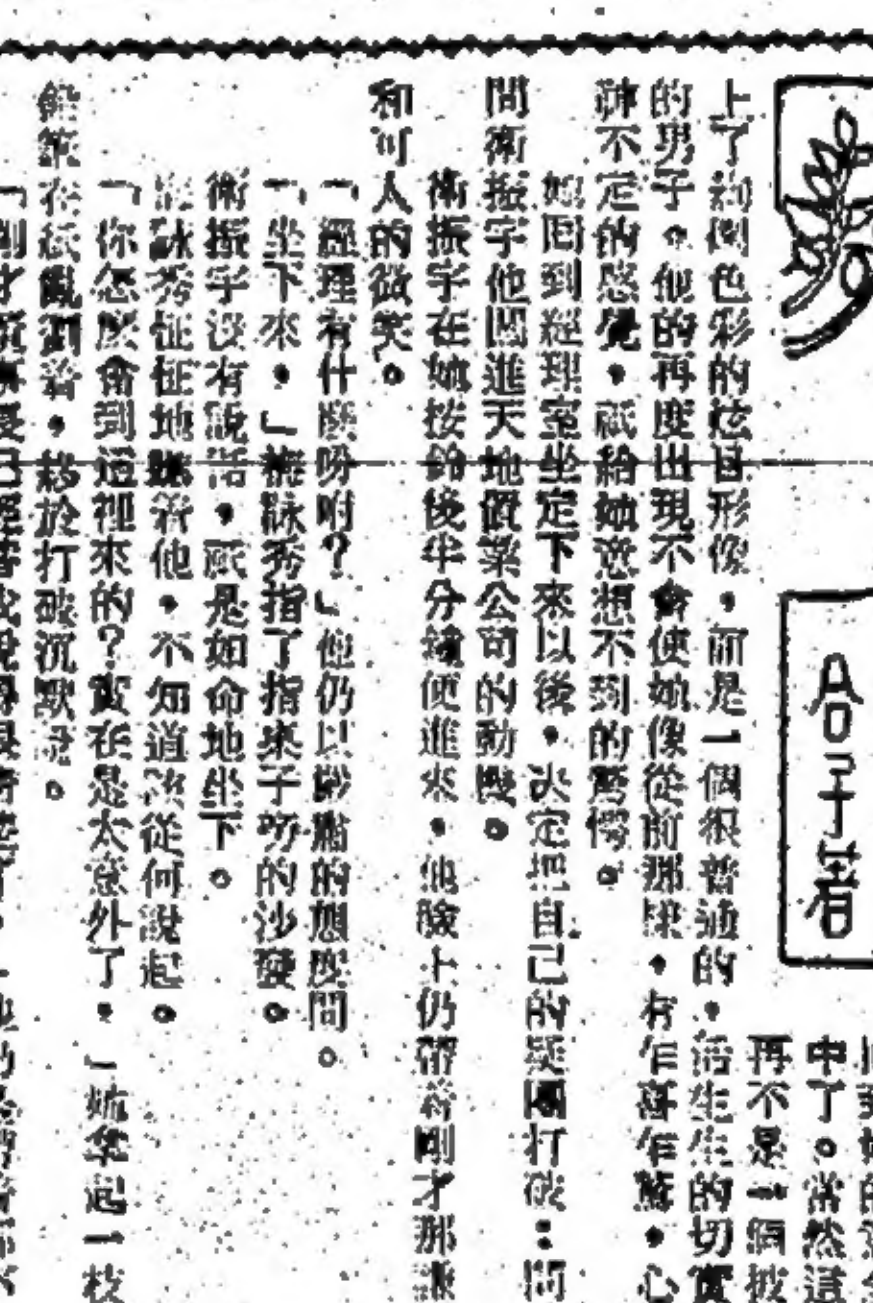 中了。當然這
再不是一個披
上了絢爛色彩的炫目形像,而是一個很普通的,活生生的切實
的男子。他的再度出現不會使她像從前那樣,有乍喜乍驚,心
神不定的感覺,祇給她意想不到的驚愕。
她回到經理室坐定下來以後,決定把自己的疑團打破:問
問衛振宇他闖進天地置業公司的動機。
衛振宇在她按鈴後半分鐘便進來,他臉上仍帶着剛才那謙
和可人的微笑。
「經理有什麼吩咐?」他仍以 的態度問。
「坐下來,」梅詠秀指了指桌子旁的沙發。
衛振宇沒有說話,祇是如命地坐下。
梅詠秀怔怔地瞧着他,不知道該從何說起。
「你怎麼會到這裡來的?實在是太意外了,」她拿起一枝
鉛筆在紙亂劃着,終於打破沉默說。
合子著